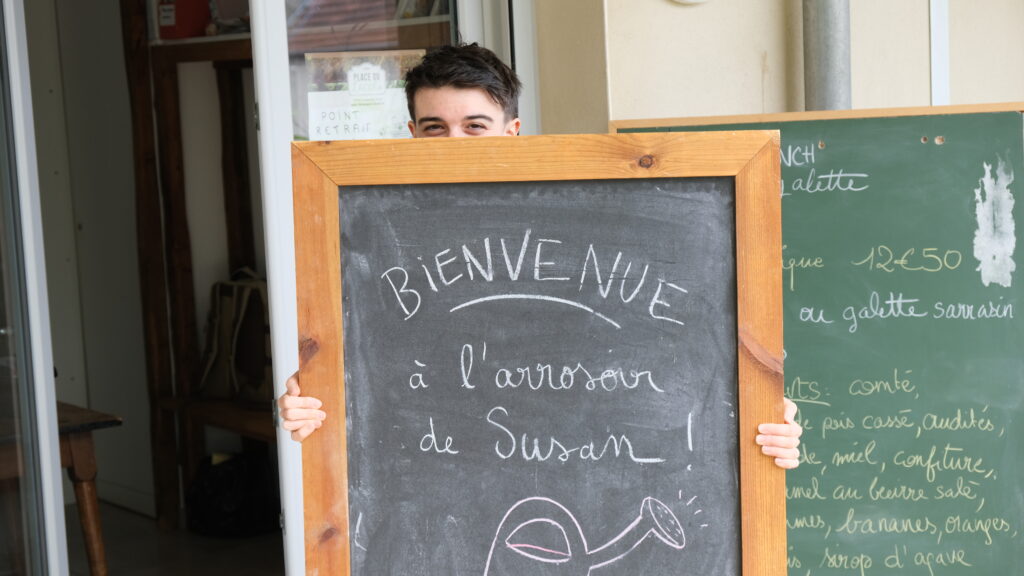 PLACE DU
POINT
RETRAIT
BIENVENUE
à l'arrosoir
de Susan !
NCH
galette
que 12€50
ou galette sarrasin
comté,
pois cassé, audités,
miel, confiture,
au beurre salé,
bananes, oranges,
sirop d'agave